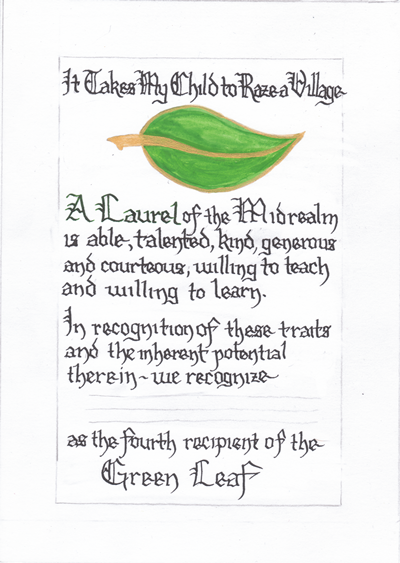 It Takes My Child to Raze a Village
A Laurel of the Midrealm
is able, talented, kind, generous
and courteous, willing to teach
and willing to learn.
In recognition of these traits
and the inherent potential
therein~we recognize
as the fourth recipient of the
Green Leaf